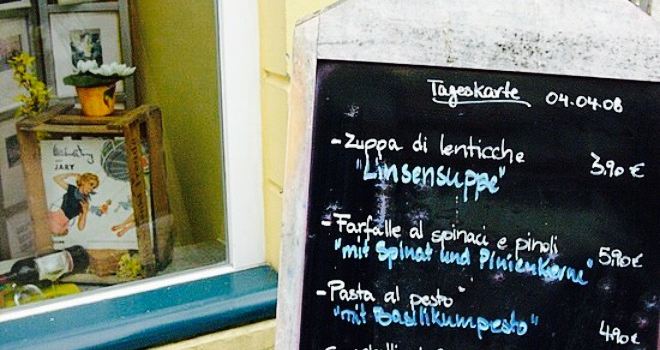 Tageskarte 04.04.08
- Zuppa di lenticche 3,90 €
"Linsensuppe"
- Farfalle al spinaci e pinoli 5,90 €
"mit Spinat und Pinienkerne"
- Pasta al pesto
"mit Basilikumpesto" 4,90 €
JARY